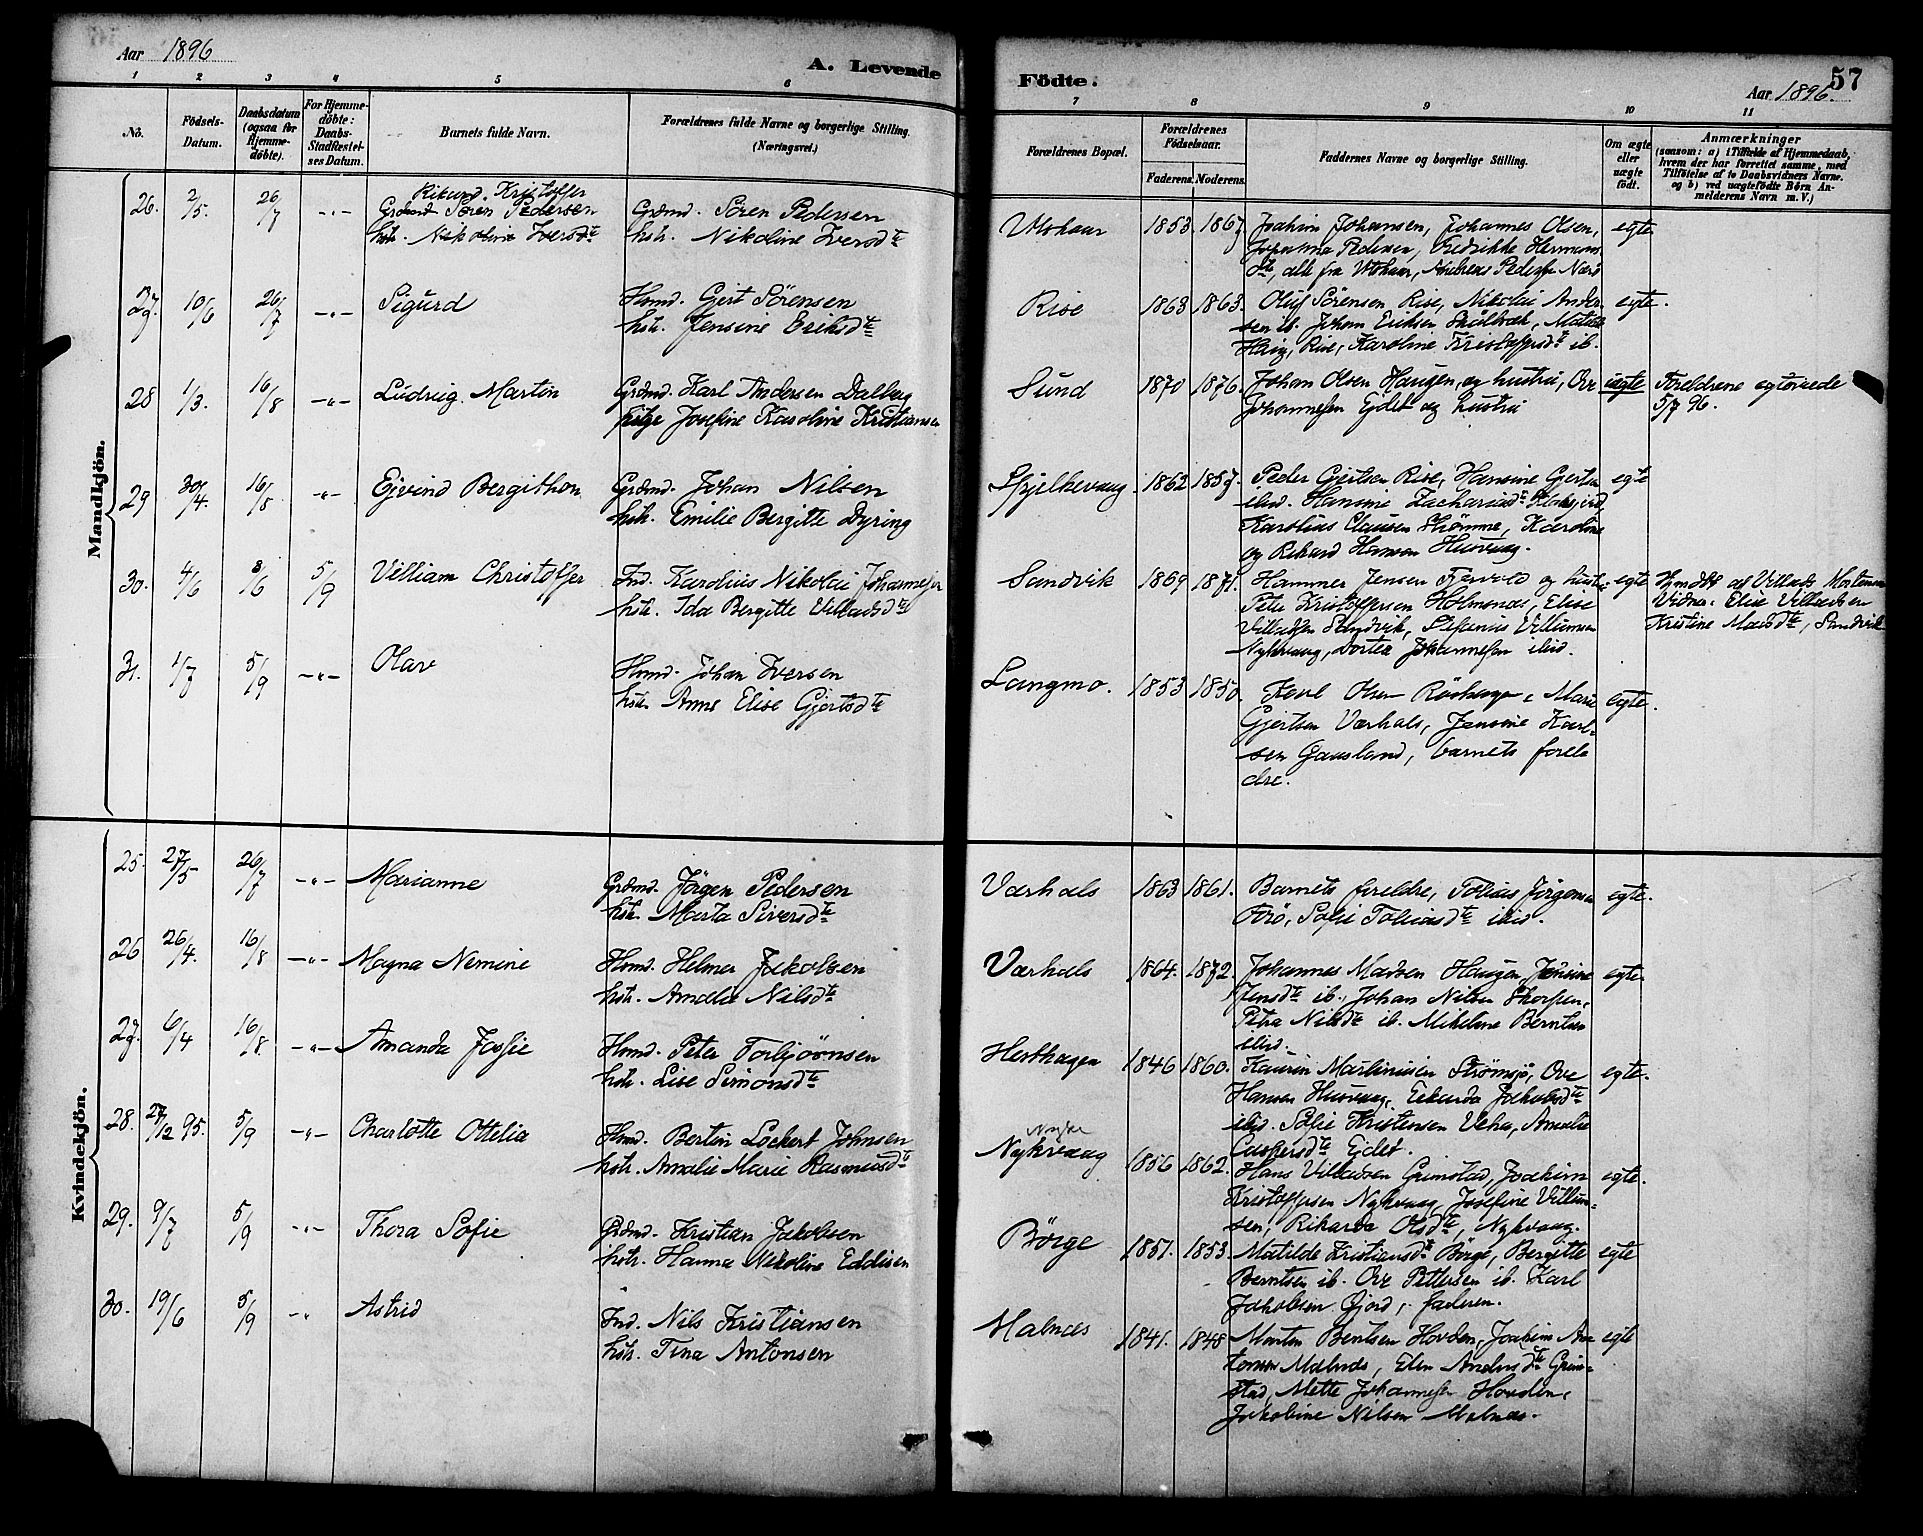 Aar 1896
A. Levende
Födte.
57
Aar 1896.
1 2 3 4 5 6 7 8 9 10 11
No.
Födsels-
Datum.
Daabsdatum
(ogsaa for
Hjemme-
döbte).
For Hjemme-
döbte:
Daabs-
Stadfæstel-
ses Datum.
Barnets fulde Navn.
Forældrenes fulde Navne og borgerlige Stilling.
(Næringsvei.)
Forældrenes Bopæl.
Forældrenes
Födselsaar.
Faderens. Moderens.
Faddernes Navne og borgerlige Stilling.
Om ægte
eller
uægte
födt.
Anmærkninger
(saasom: a) i Tilfælde af Hjemmedaab,
hvem der har forrettet samme, med
Tilföielse af to Daabsvidners Navne.
og b) ved uægtefödte Börn An-
melderens Navn m.V.)
Mandkjön.
26. 2/5. 26/7 -"- Rikard Kristoffer
Grdmd. Sören Pedersen
hstr. Nikoline Iversdte
Grdmd. Sören Pedersen
hstr. Nikoline Iversdte
Utohaar 1853. 1867
Joakim Johansen, Johannes Olsen,
Pedersen, Fredrikke Hermans
dte, alle fra Utohaar, Andreas Peders
egte
27. 10/6 26/7 -"- Sigurd
Hmd. Gert Sörensen
hstr. Jensine Eriksdte
Rise 1863 1863.
Oluf Sörensen Rise, Nikolai Ander-
sen ib. Johan Eriksen
Haug, Rise, Karoline Kristoffersdte ib.
egte.
28 1/3. 16/8 -"- Ludvig Martin
Grdmd. Karl Andersen Dalberg
pige Josefine Karoline Kristiansen
Sund 1870 1876
Johan Olsen Haugen, og hustru, Ove
Johannesen Ejdet og hustru
uegte
Foreldrene egteviede
5/7 96.
29 30/4. 16/8 -"- Ejvind Bergithon
Grdmd. Johan Nilsen
hstr. Emilie Bergitte Dyring
Spjelkevaag. 1862 1857.
Peder Gjertsen Rise, Hansine Gjertsen
ibid. Hansine Zachariasdte
Karolius Clausen Strömme, Karoline
og Rikard Hansen Husvaag.
egte
30. 4/6 8/6 5/9 Villiam Christoffer
Ind. Karolius Nikolai Johannesen
hstr. Ida Bergitte Villadsdte
Sandvik 1869 1871.
Hammer Jensen og hustru
Peter Kristoffersen Holmsnes, Elise
Villadsen Sandvik, Villumsen
Nykvaag, Dortea Johannesen ibid.
egte
Hjmdbt. af Villads Mortensen
Vidne: Elise Villadsen
Kristine Madsdte, Sandvik
31. 1/7 5/9 -"- Olav
Hmd. Johan Iversen
hstr. Anne Elise Gjertsdte
Langmo. 1853 1850.
Karl Olsen Röskhaga, Marie
Gjertsen Værhals, Jensine Karl-
sen Gaasland, barnets forel-
dre.
egte.
Kvindekjön.
25. 27/5 26/7 -"- Marianne
Grdmd. Jörgen Pedersen
hstr. Marta Siversdte
Værhals 1863 1861.
Barnets foreldre, Tobias Jörgensen
Arö, Sofie Tobiasdte ibid.
egte.
26 26/4. 16/8 -"- Magna Nemine
Hmd. Helmer Jakobsen
hstr. Amalie Nilsdte
Værhals 1864. 1872.
Johannes Madsen Haugen, Jensine
Jensdte ib. Johan Nilsen Skorpen,
Petra Nilsdte ib. Mikeline Berntsen
ibid.
egte.
27. 6/4 16/8. -"- Amanda Josfie
Hmd. Peter Torbjörnsen
hstr. Lise Simonsdte
Hesthagen 1846 1860.
Laurin Martinusen Strömsjö, Ove
Hansen Husvaag, Eckarda Jakobsdte
ibid. Sofie Kristensen Veha, Amalie
Caspersdte Ejdet.
egte.
28. 27/12 95. 5/9 -"- Charlotte Ottelia
Hmd. Bertin Lockert Johnsen
hstr. Amalie Marie Rasmusdte
Nykvaag 1856 1862.
Hans Villadsen Grimstad, Joakim
Kristoffersen Nykvaag, Josefine Villum-
sen, Rikarda Olsdte, Nykvaag.
egte.
29. 9/7 5/9 -"- Thora Sofie
Grdmd. Kristian Jakobsen
hstr. Hanna Nikoline Eddisen
Börge 1851. 1853
Matilde Kristiansdte Börge, Bergitte
Berntsen ib. Ove Pettersen ib. Karl
Jakobsen Gjord, faderen.
egte
30. 19/6 5/9 -"- Astrid
Ind. Nils Kristiansen
hstr. Tina Antonsen
Malnes 1841. 1848
Morten Bentsen Hovden, Joakim An-
tonsen Malnes, Elen Andersdte Grim-
stad, Mette Johannesen Hovden,
Jakobine Nilsen Malnes.
egte